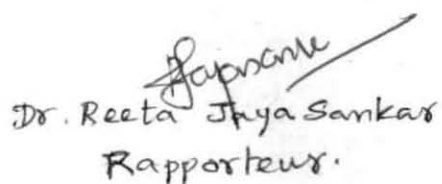 Dr. Reeta Jaya Sankar
Rapporteur.